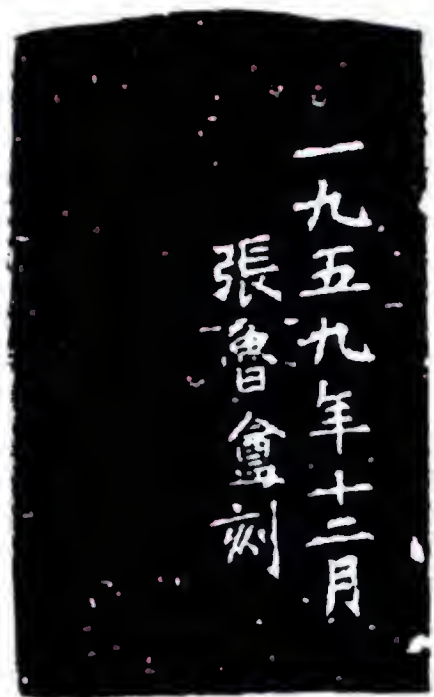 一九五九年十二月
張魯盦刻